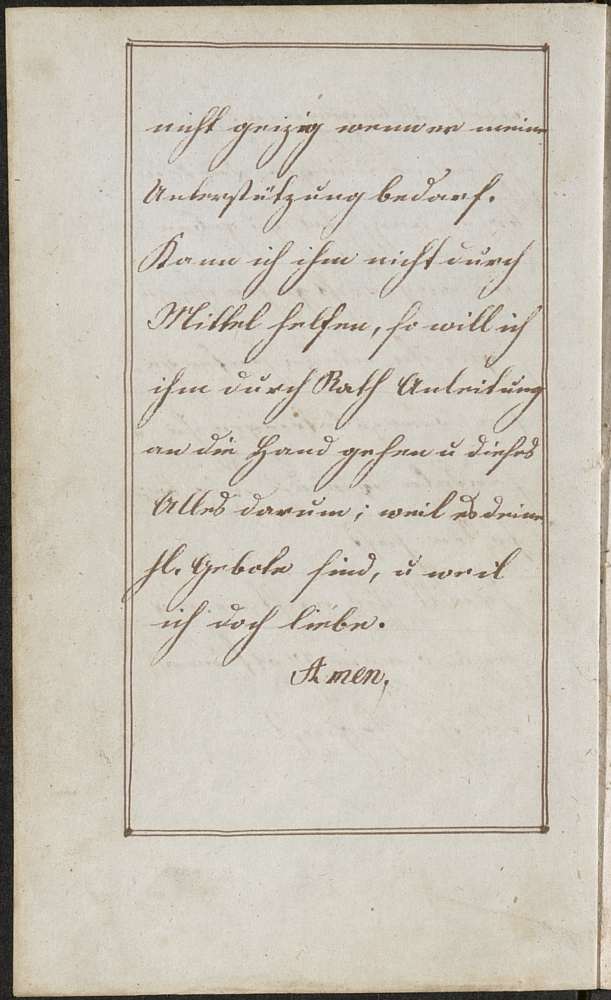 nicht geizig wenn er meine
Unterstützung bedarf.
Kann ich ihm nicht durch
Mittel helfen, so will ich
ihm durch Rath Anleitung
an die Hand gehen u dieses
Alles darum; weil es deine
hl. Gebote sind, u weil
ich doch liebe.
Amen.